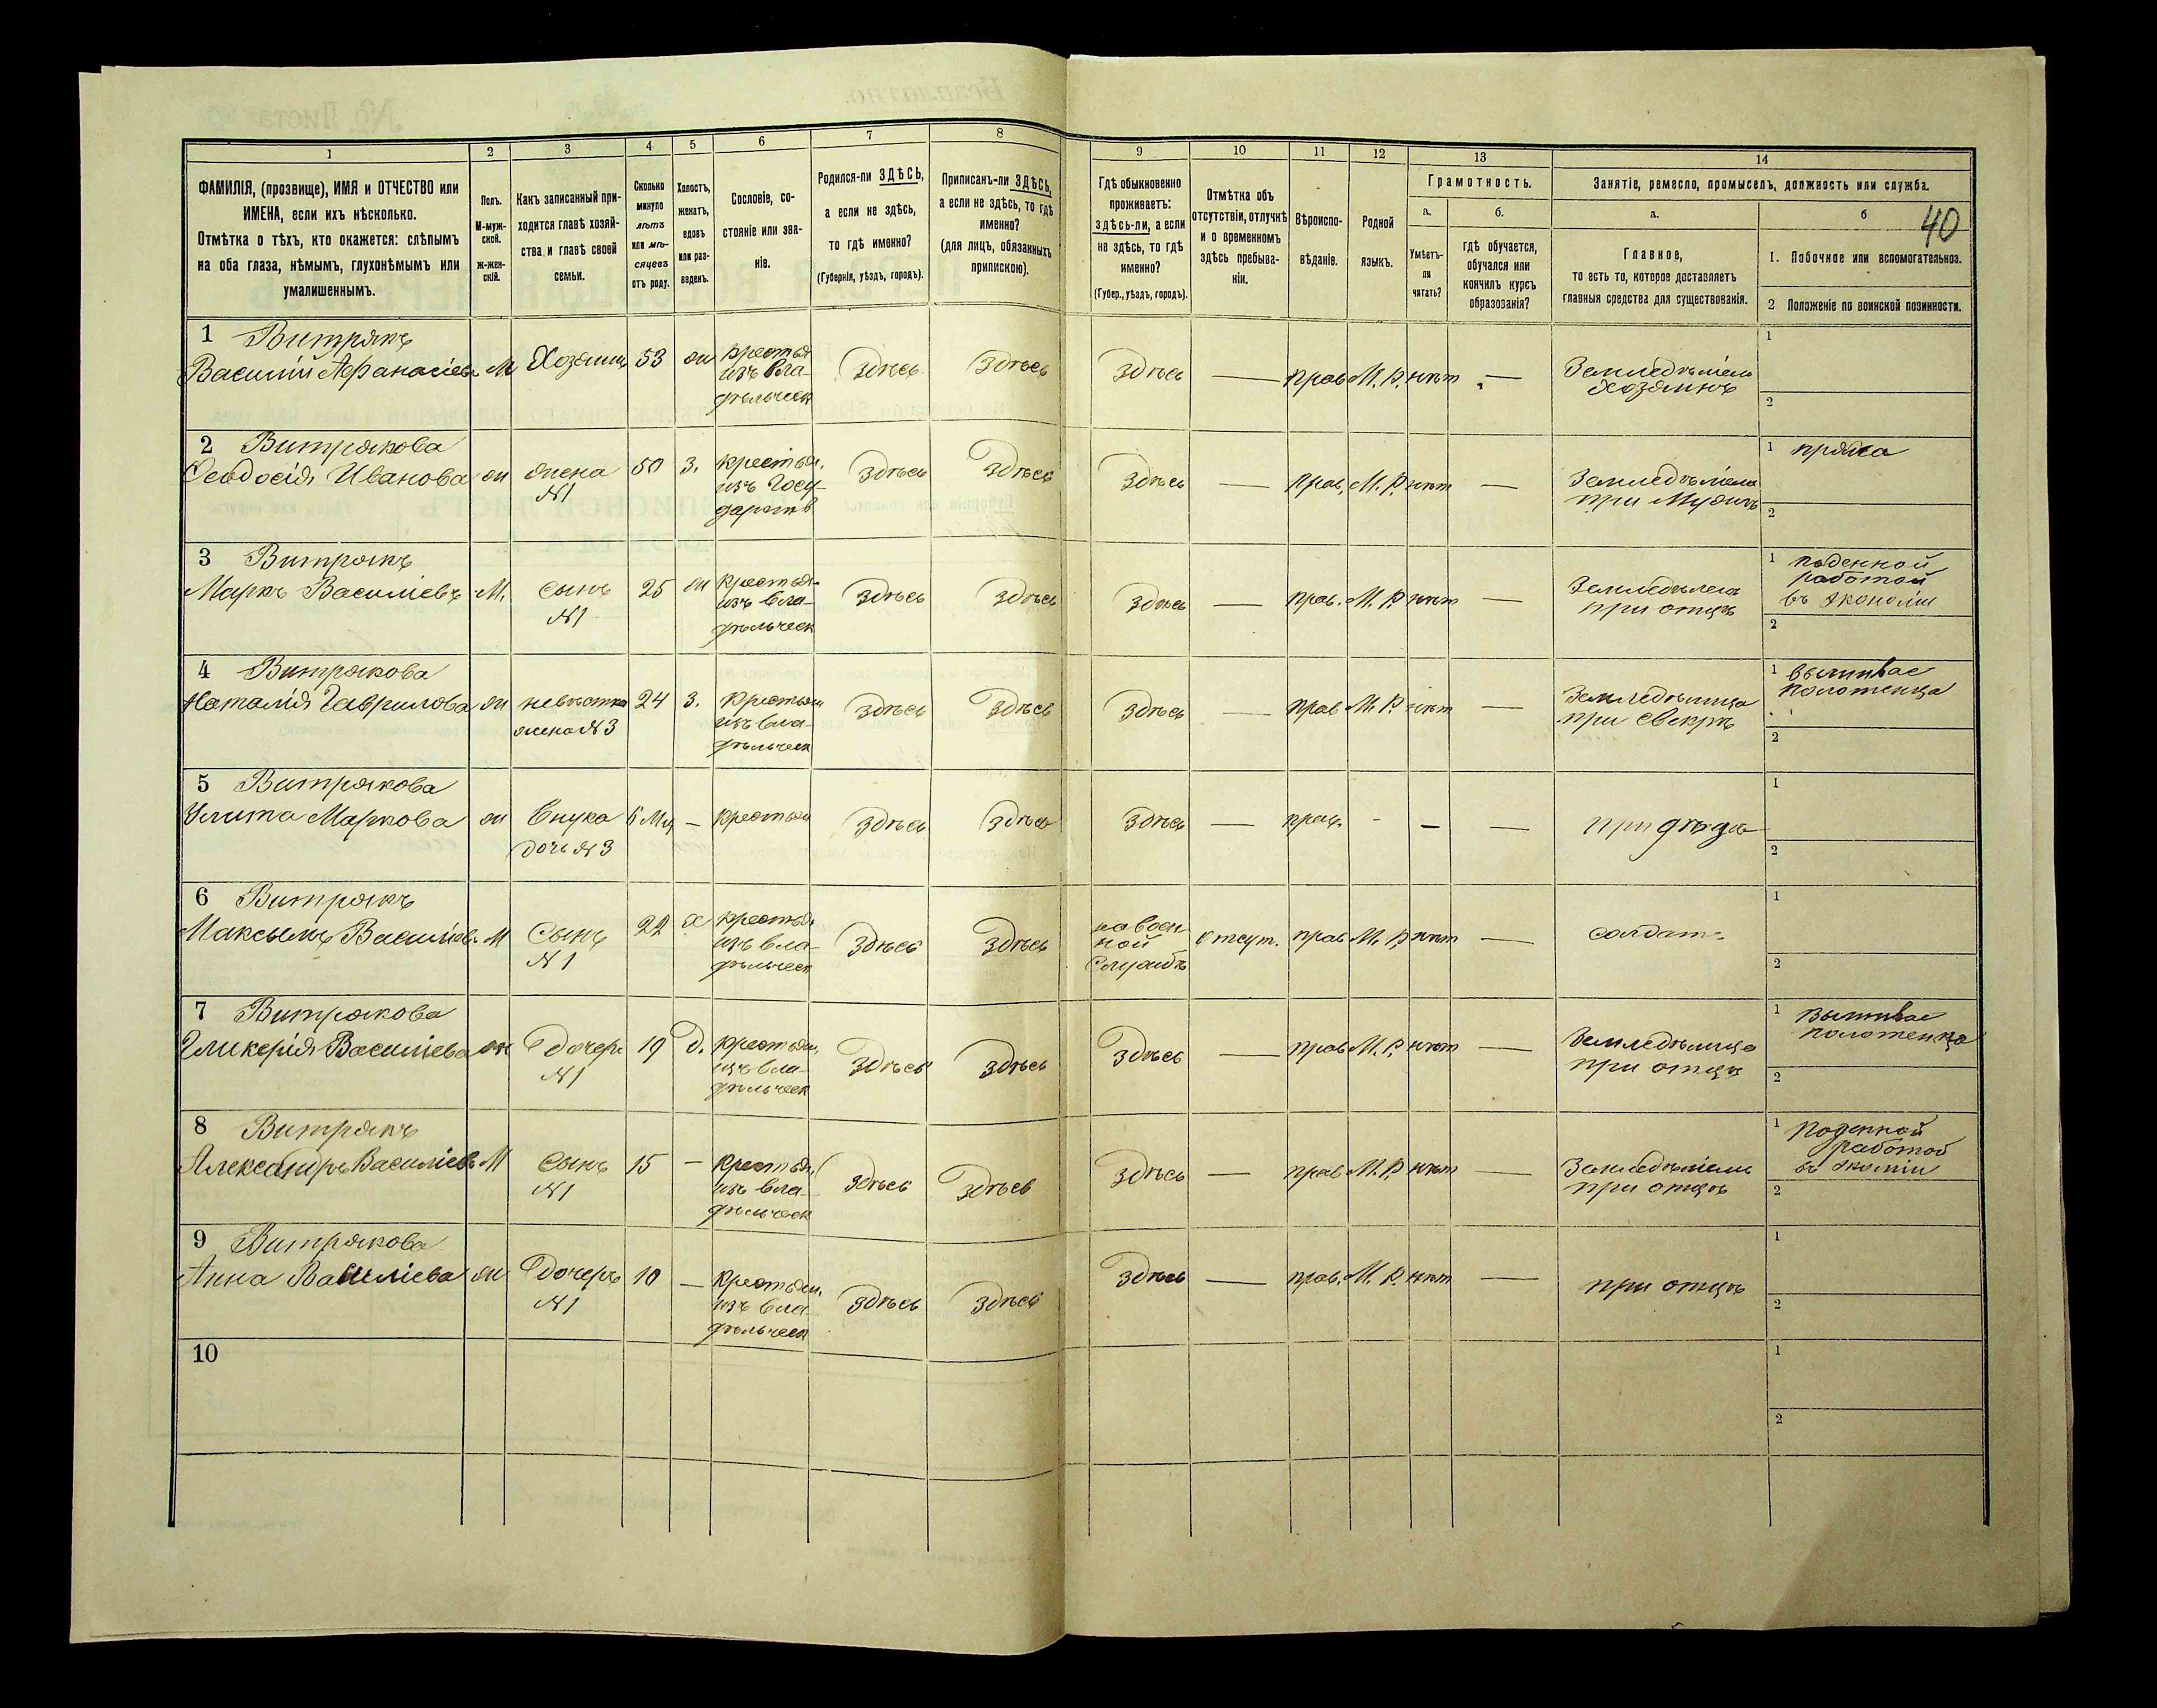 1
2
3
4
5
6
7
8
9
10
11
12
13
14
ФАМИЛІЯ, (прозвище), ИМЯ и ОТЧЕСТВО или
ИМЕНА, если ихъ нѣсколько.
Отмѣтка о тѣхъ, кто окажется: слѣпымъ
на оба глаза, нѣмымъ, глухонѣмымъ или
умалишеннымъ.
Полъ.
М-муж-
ской.
ж-жен-
скій.
Какъ записанный при-
ходится главѣ хозяй-
ства и главѣ своей
семьи.
Сколько
минуло
лѣтъ
или мѣ-
сяцевъ
отъ роду.
Холостъ,
женатъ,
вдовъ
или раз-
веденъ.
Сословіе, со-
стояніе или зва-
ніе.
Родился-ли ЗДѢСЬ,
а если не здѣсь,
то гдѣ именно?
(Губернія, уѣздъ, городъ).
Приписанъ-ли ЗДѢСЬ,
а если не здѣсь, то гдѣ
именно?
(для лицъ, обязанныхъ
припискою).
Гдѣ обыкновенно
проживаетъ:
здѣсь-ли, а если
не здѣсь, то гдѣ
именно?
(Губер., уѣздъ, городъ).
Отмѣтка объ
отсутствіи, отлучкѣ
и о временномъ
здѣсь пребыва-
ніи.
Вѣроиспо-
вѣданіе.
Родной
языкъ.
Грамотность.
а.
б.
Умѣетъ-
ли
читать?
гдѣ обучается,
обучался или
кончилъ курсъ
образованія?
Занятіе, ремесло, промыселъ, должность или служба.
а.
б
40
Главное,
то есть то, которое доставляетъ
главныя средства для существованія.
1. Побочное или вспомогательное.
2 Положеніе по воинской повинности.
1 Витрякъ
Василій Афанасіевъ М Хозяинъ 53 ж крестья
изъ вла-
дѣльческ
Здѣсь Здѣсь Здѣсь — прав М. Р. нѣтъ — Земледѣлец
Хозяинъ
1
2
2 Витрякова
Ѳеодосія Иванова ж жена 50 з. крестья.
№1
изъ Госу-
дарств
Здѣсь Здѣсь Здѣсь — прав. М. Р. нѣтъ — Земледѣлец
при Мужѣ
1 пряжа
2
3 Витрякъ
Маркъ Василіевъ М. сынъ 25 ж крестья-
№1
изъ вла-
дѣльческ
Здѣсь Здѣсь Здѣсь — прав. М. Р. нѣтъ — Земледѣлец
при отцѣ
1 поденной
работой
въ экономіи
2
4 Витрякова
Наталія Гаврилова ж невѣстка 24 з. крестьян
жена №3
изъ вла-
дѣльческ
Здѣсь Здѣсь Здѣсь — прав М. Р. нѣтъ — Земледѣлица
при свекрѣ
1 вышивае
полотенца
2
5 Витрякова
Улита Маркова ж Внука 6 Мц — крестьян
дочь №3
Здѣсь Здѣсь Здѣсь — прав. - — — при дѣдѣ
1
2
6 Витрякъ
Максымъ Василіев. М Сынъ 22 х крестья.
№1
изъ вла-
дѣльческ
Здѣсь Здѣсь на воен
ной
Службѣ
отсут. прав М. Р. нѣтъ — солдатъ
1
2
7 Витрякова
Гликерія Василіева ж дочерь 19 д. крестьян.
№1
изъ вла-
дѣльческ
Здѣсь Здѣсь Здѣсь — прав М. Р. нѣтъ — Земледѣлица
при отцѣ
1 вышивае
полотенца
2
8 Витрякъ
Александръ Василіевъ М сынъ 15 — крестья.
№1
изъ вла-
дѣльческ
Здѣсь Здѣсь Здѣсь — прав М. Р. нѣтъ — Земледѣлец
при отцѣ
1 поденной
работой
2
9 Витрякова
Анна Василіева ж дочерь 10 — крестьян.
№1
изъ вла-
дѣльческ
Здѣсь Здѣсь Здѣсь — прав. М. Р. нѣтъ — при отцѣ
1
2
10
1
2